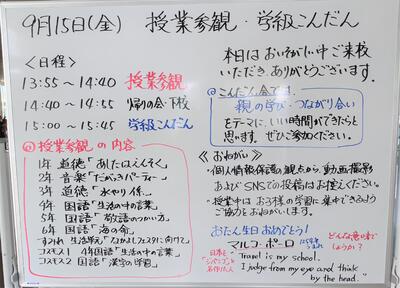 9月15日(金) 授業参観・学級こんだん
<日程>
13:55〜14:40 授業参観
14:40〜14:55 帰りの会・下校
15:00〜15:45 学級こんだん
授業参観の内容
1年 道徳「あしたはえんそく」
2年 音楽「だがっきパーティー」
3年 道徳「水やり係」
4年 国語「生活の中の言葉」
5年 国語「敬語のつかい方」
6年 国語「海の命」
すみれ 生活単元「なかよしフェスタに向けて」
コスモス1 4年国語「生活の中の言葉」
コスモス2 国語「漢字の学習」
本日はおいそがしい中ご来校
いただき、ありがとうございます。
こんだん会では、
親の学び・つながり合い
をテーマに、いい時間ができたらと
思います。ぜひご参加ください。
<おねがい>
・個人情報保護の観点から、動画撮影
およびSNSでの投稿はお控えください。
・授業中はお子様の学習に集中できるよう
ご協力をおねがいします。
おたん生日おめでとう!
マルコ・ポーロ
どんな意味で
しょうか?
日本を
「ジパング」と
名付けた人
"Travel is my school.
I judge from my eye and think
by the head."